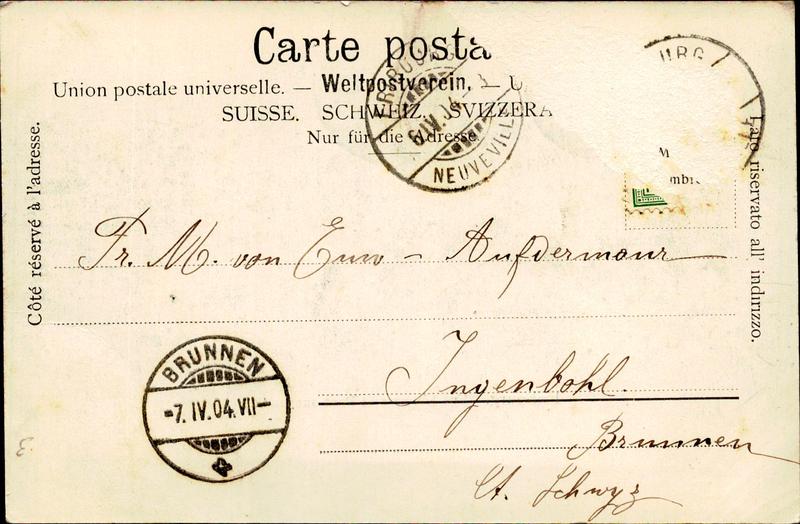 Carte posta
Union postale universelle. — Weltpostverein. — U
SUISSE. SCHWEIZ. SVIZZERA
Nur für die Adresse
Côté réservé à l'adresse.
Lato riservato all' indirizzo.
NEUVEVILL
IV. 04
URG
M
mbr
Fr. M. von Euw - Aufdermaur
Ingenbohl.
Brunnen
Ct. Schwyz
BRUNNEN
-7. IV. 04. VII-
3